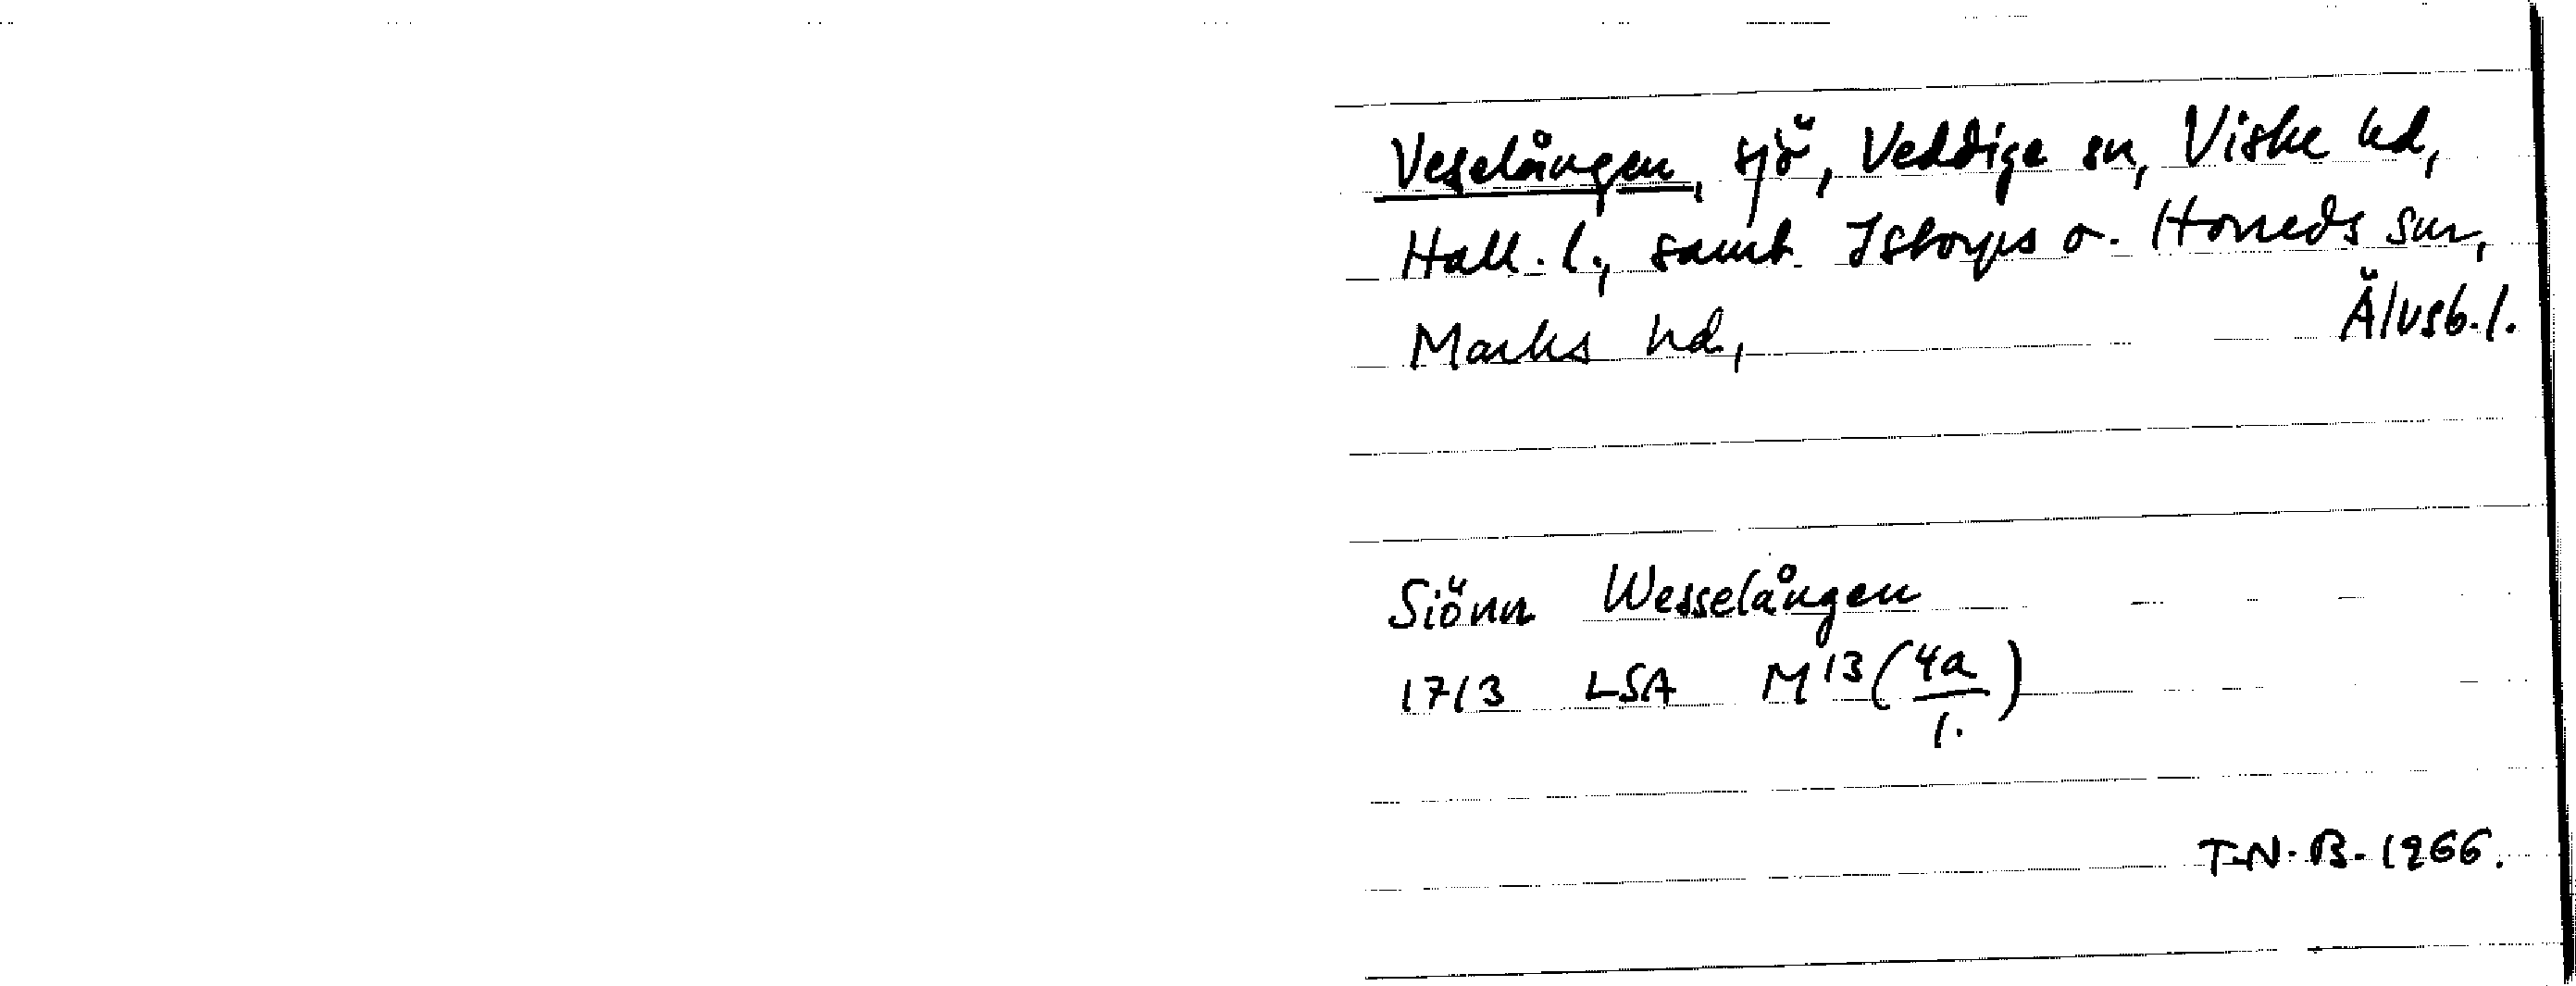 Veselången, sjö, Veddige sn, Viske hd,
Hall. l., samt Istorps o. Horreds snr,
Marks hd, Älvsb. l.
Siönn Wesselången
1713 LSA M13 (4a/1.)
T.N.B. 1966.